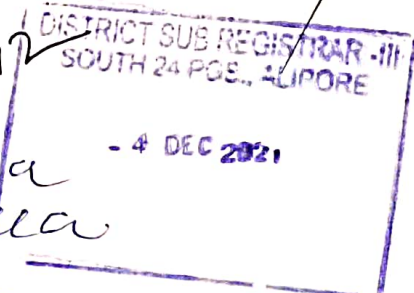 DISTRICT SUB REGISTRAR -III
SOUTH 24 PGS., ALIPORE
- 4 DEC 2021